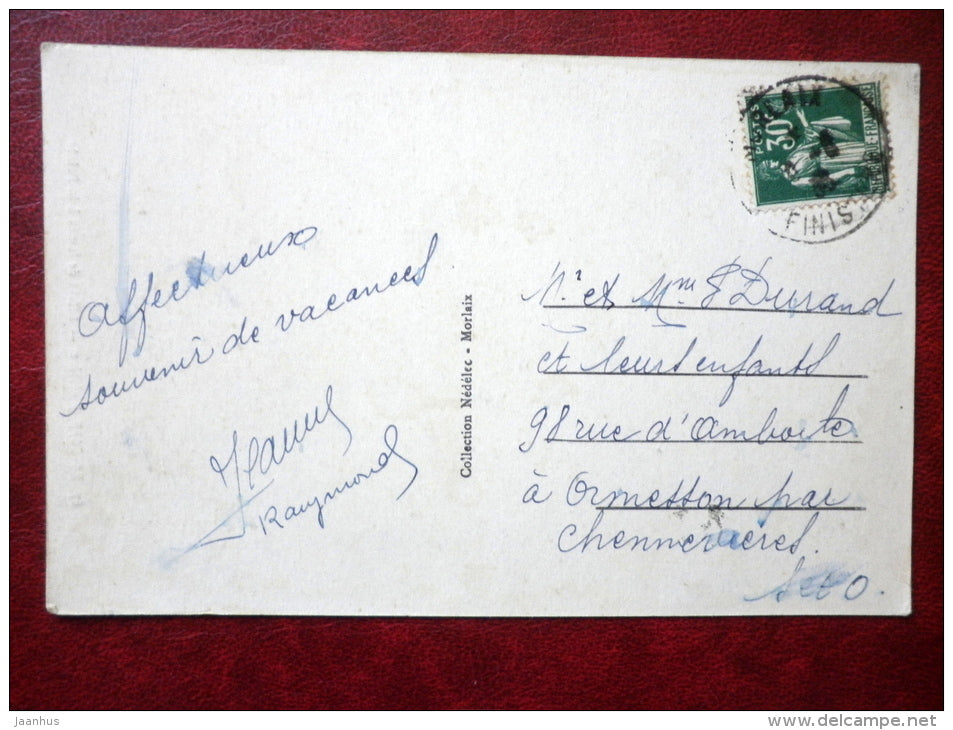 Affectueux
souvenir de vacances
Jeanne
Raymond
Collection Nédélec - Morlaix
MORLAIX
FINIS
POSTES
30
REPUBLIQUE-FRANÇAISE
Mr et Mme Durand
et leurs enfants
98 rue d'Amboile
à Ormesson par
Chennevieres.
S et O.
Jaanhus
www.delcampe.net